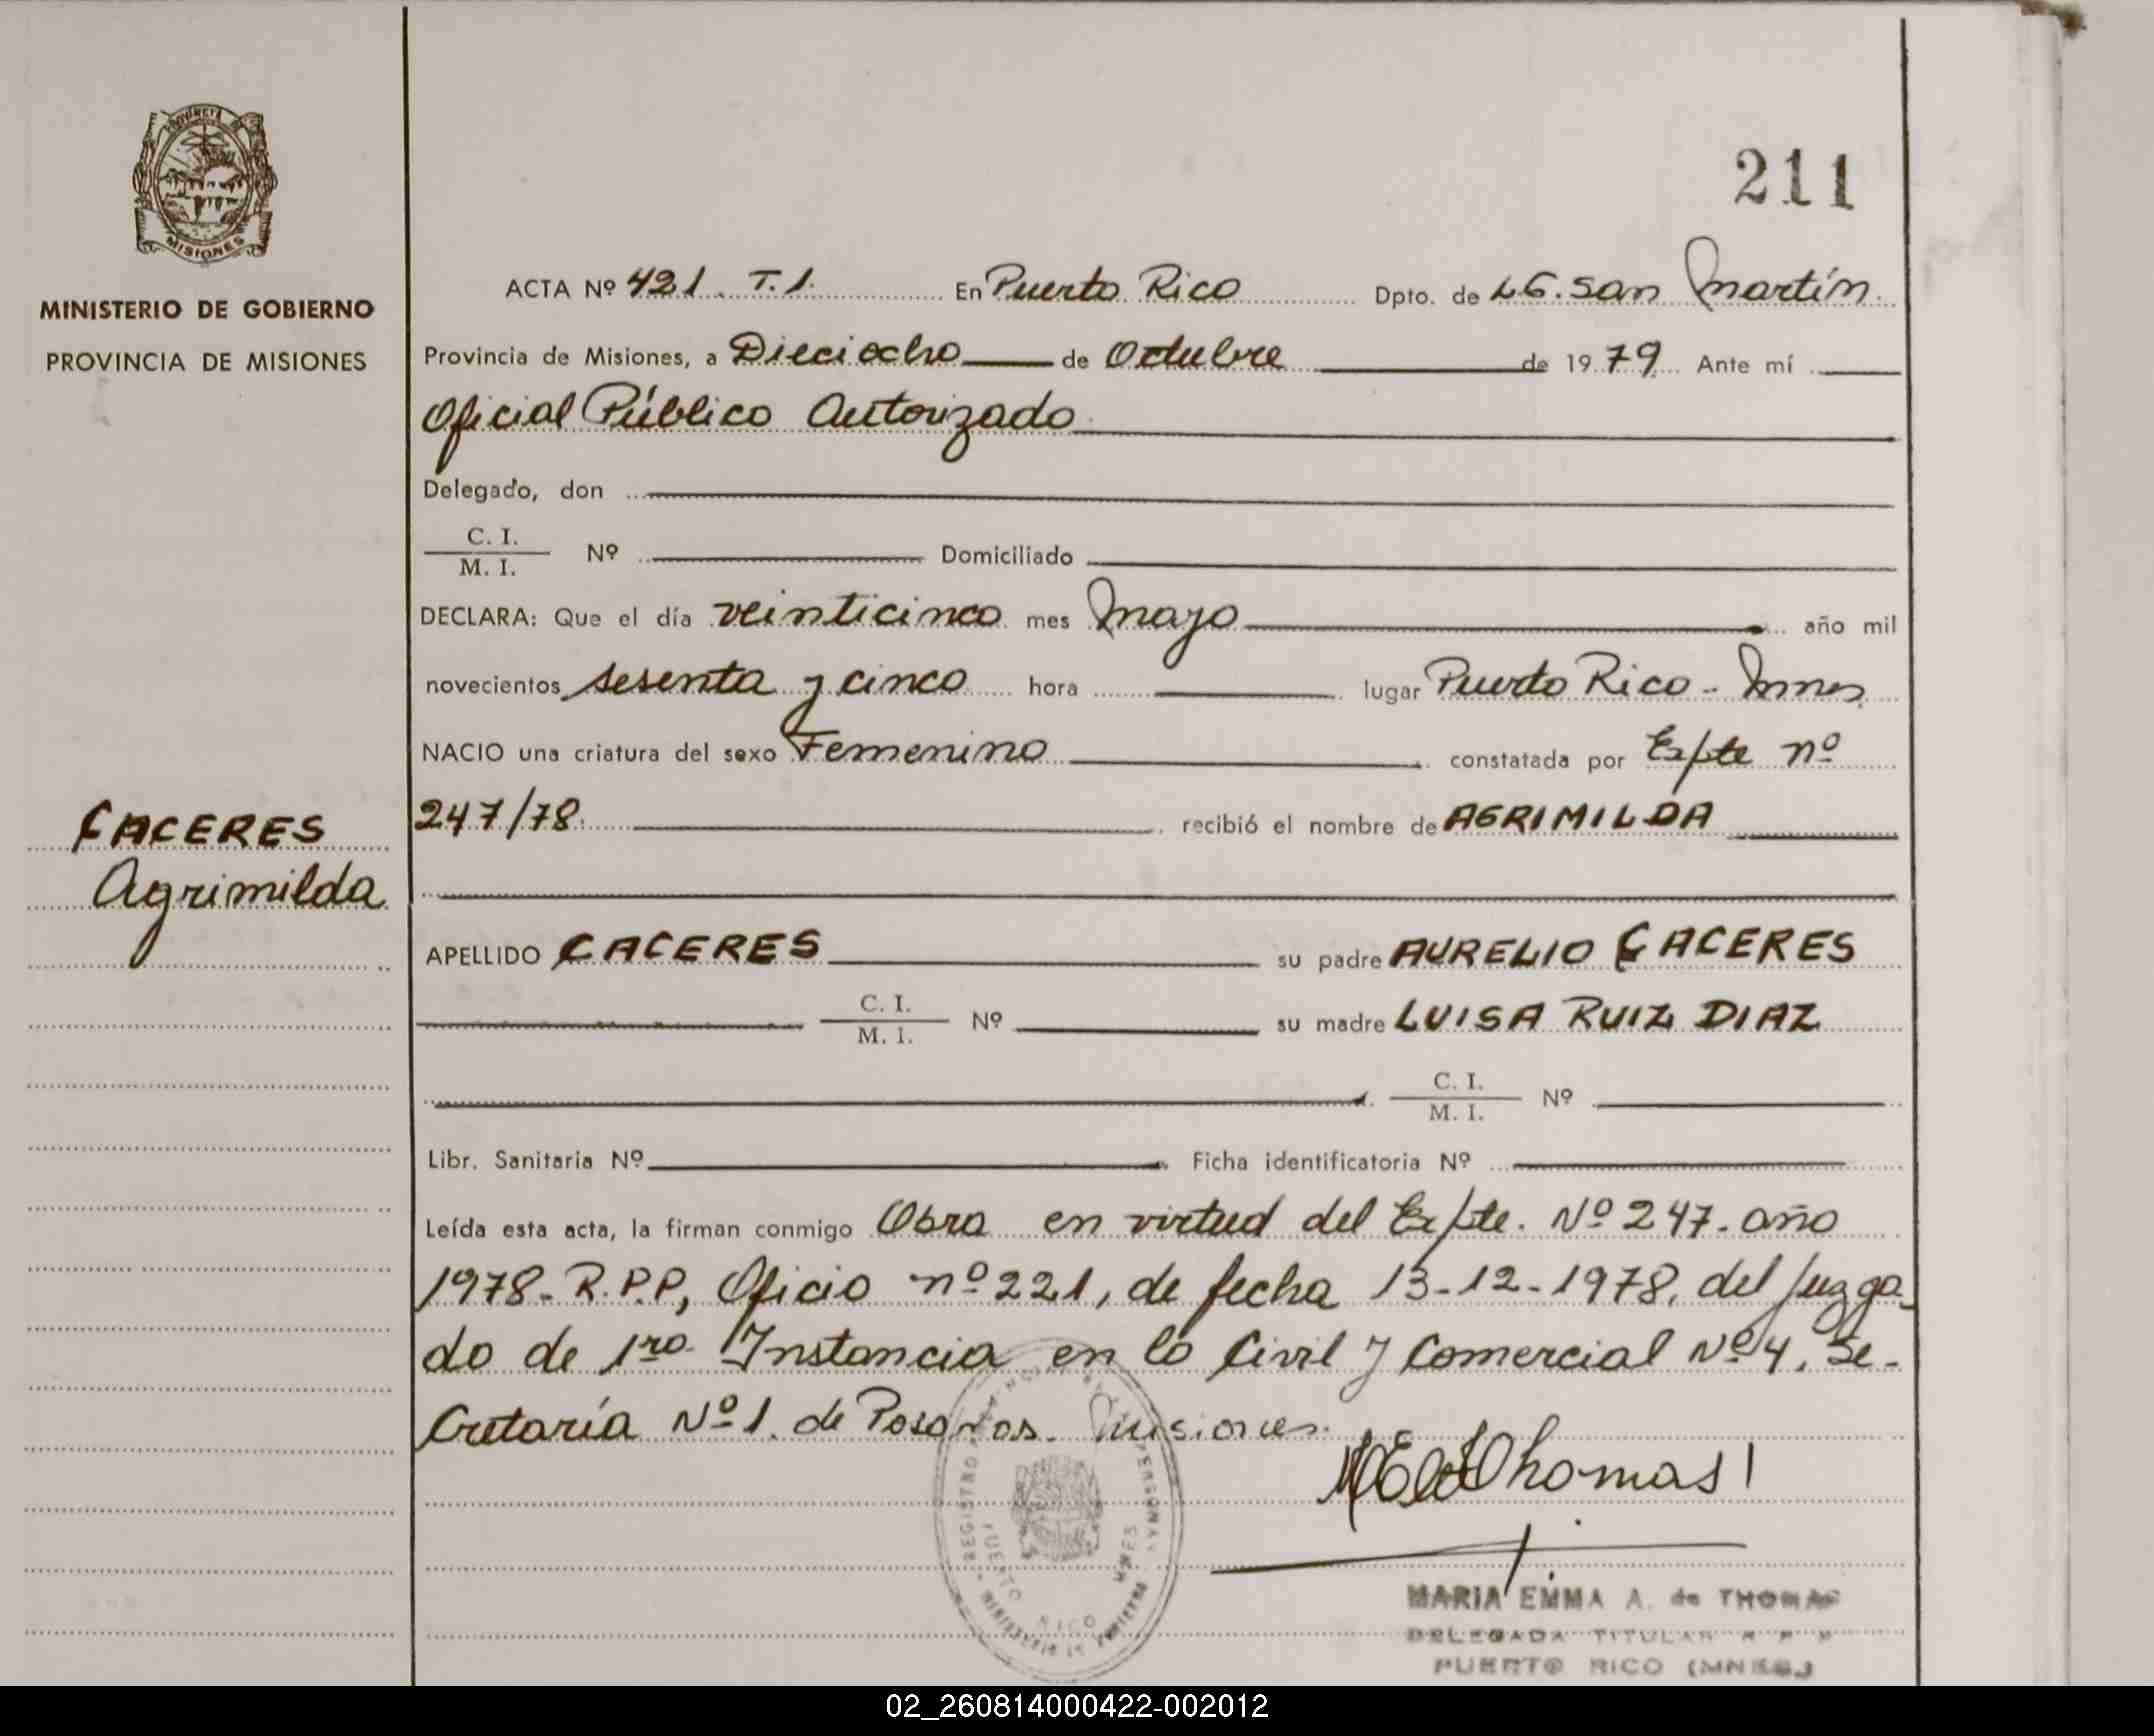 211
PROVINCIA DE
MISIONES
MINISTERIO DE GOBIERNO
PROVINCIA DE MISIONES
CACERES
Agrimilda
ACTA Nº 421. T.1. En Puerto Rico Dpto. de LG. San Martín
Provincia de Misiones, a Dieciocho de Octubre de 1979 Ante mí
Oficial Público Autorizado
Delegado, don
C. I.
M. I.
Nº Domiciliado
DECLARA: Que el día veinticinco mes Mayo año mil
novecientos sesenta y cinco hora lugar Puerto Rico - Mnes
NACIO una criatura del sexo Femenino constatada por Expte nº
247/78. recibió el nombre de AGRIMILDA
APELLIDO CACERES su padre AURELIO CACERES
C. I.
M. I.
Nº su madre LUISA RUIZ DIAZ
C. I.
M. I.
Nº
Libr. Sanitaria Nº Ficha identificatoria Nº
Leída esta acta, la firman conmigo Obra en virtud del Expte. Nº 247. año
1978. R.P.P, Oficio nº 221, de fecha 13-12-1978, del Juzga-
do de 1ra. Instancia en lo Civil y Comercial Nº 4, Se-
cretaría Nº 1. de Posadas. Misiones.
REGISTRO PROVINCIAL DE LAS PERSONAS
PUERTO RICO MNES
MINISTERIO DE GOBIERNO
Thomas
MARIA EMMA A. de THOMAS
DELEGADA TITULAR R P P
PUERTO RICO (MNES.)
02_260814000422-002012